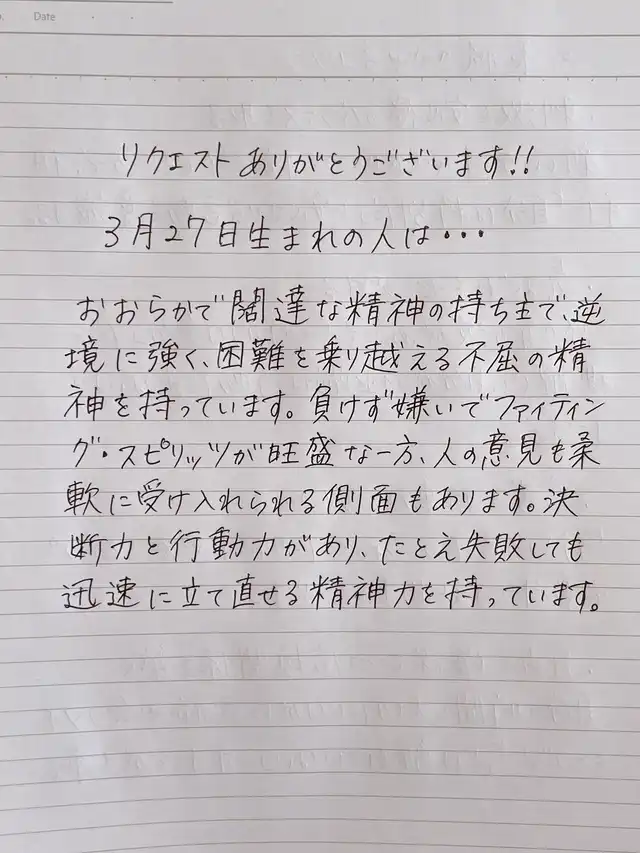 Date
リクエストありがとうございます!!
3月27日生まれの人は・・・
おおらかで闊達な精神の持ち主で、逆
境に強く、困難を乗り越える不屈の精
神を持っています。負けず嫌いでファイティン
グ・スピリッツが旺盛な一方、人の意見も柔
軟に受け入れられる側面もあります。決
断力と行動力があり、たとえ失敗しても
迅速に立て直せる精神力を持っています。